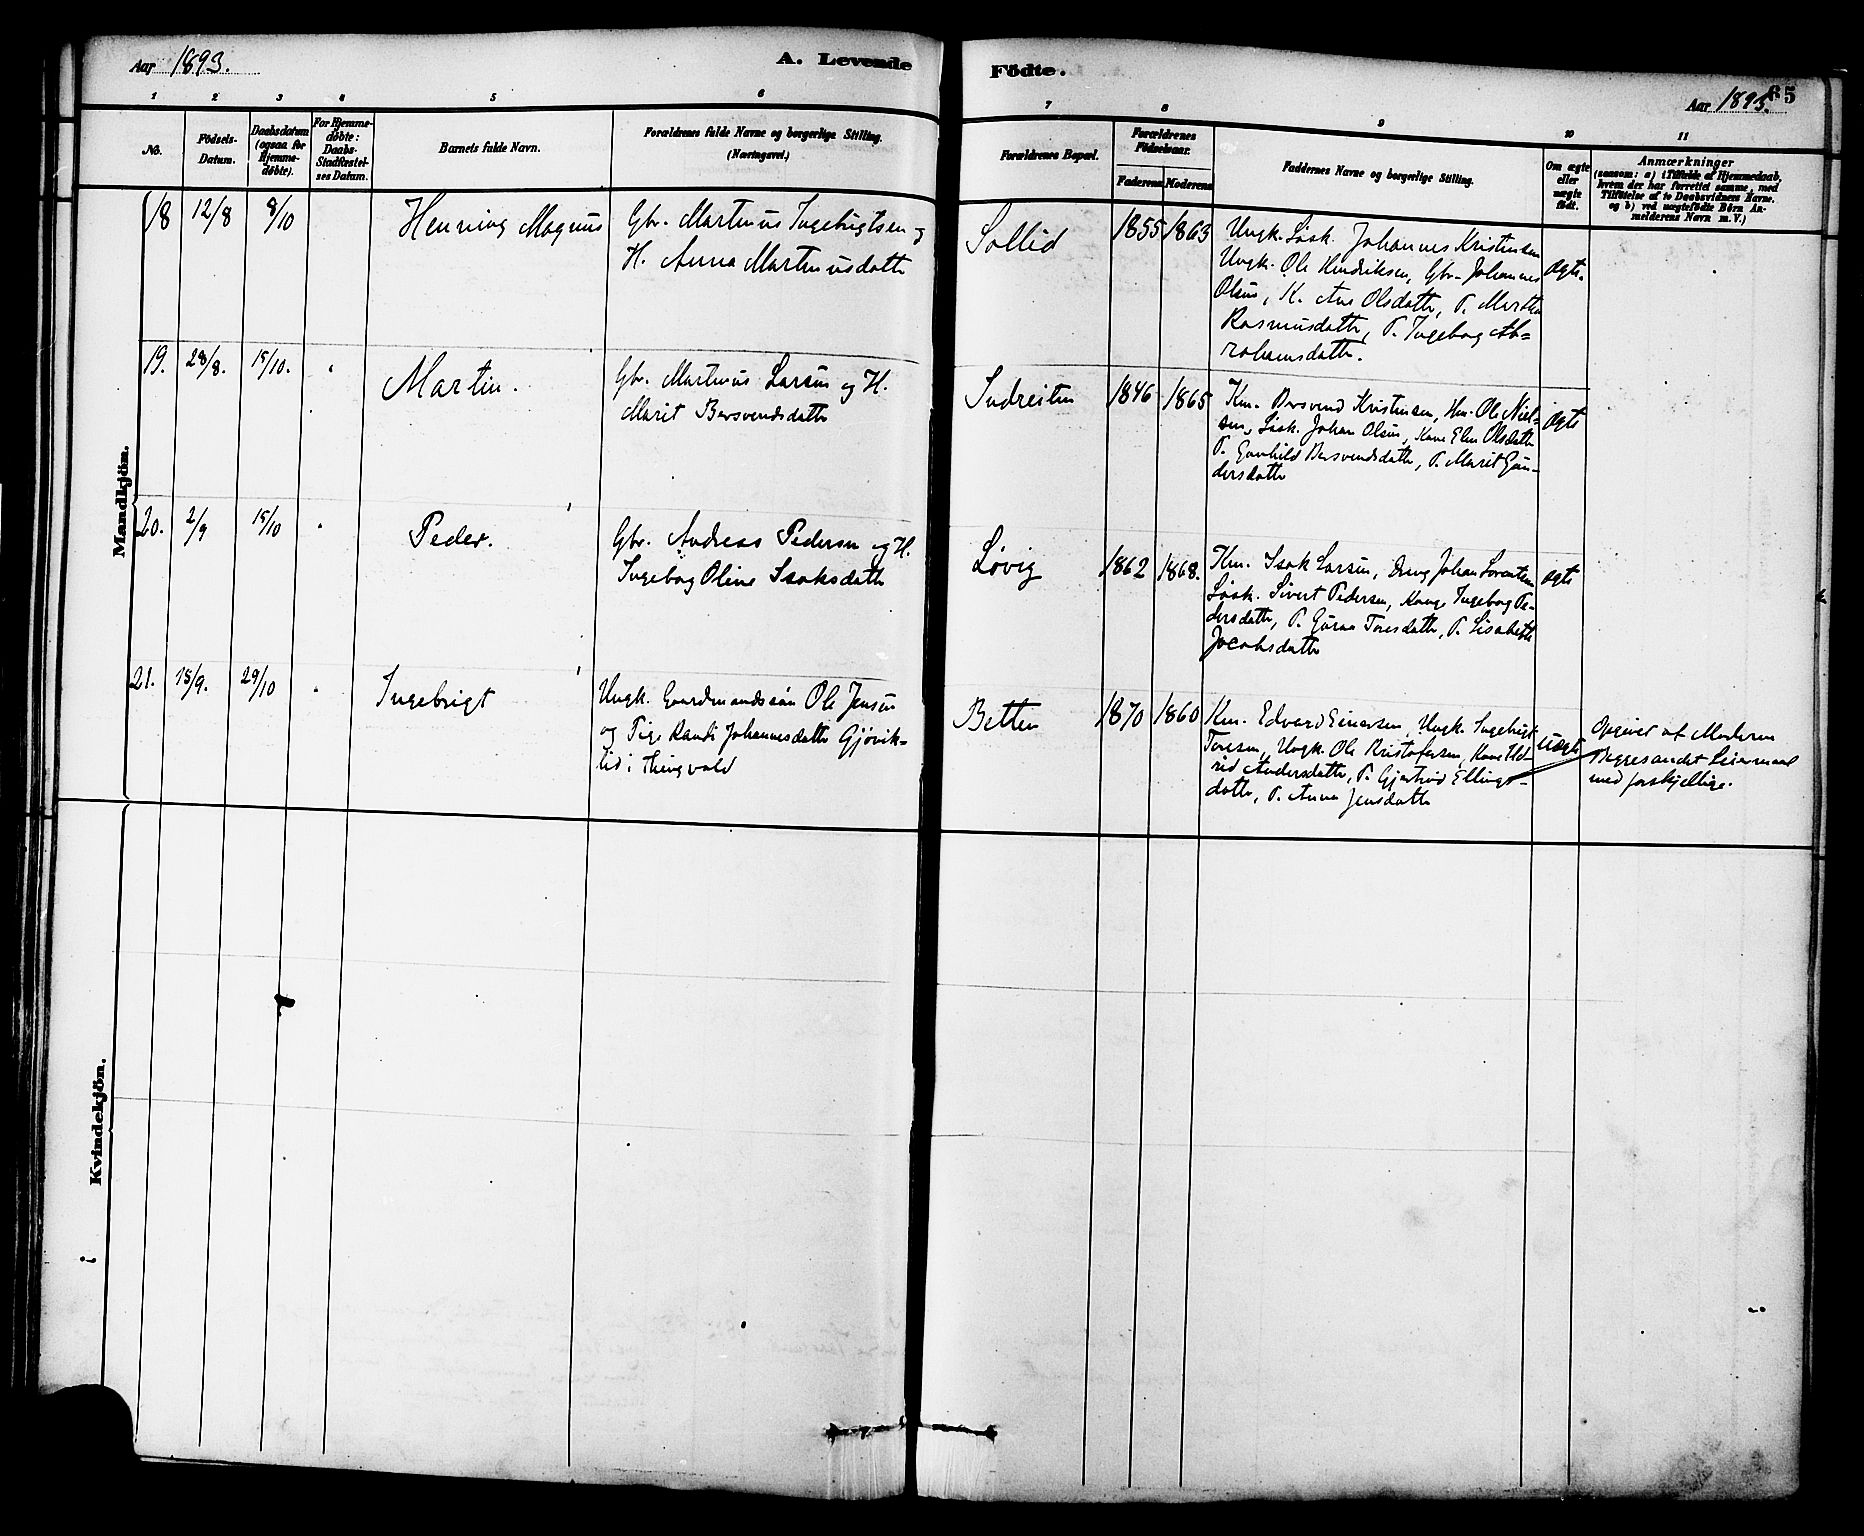 Aar 1893.
A. Levende Födte.
Aar 1893.
65
1 2 3 4 5 6 7 8 9 10 11
No.
Födsels-Datum.
Daabsdatum (ogsaa for Hjemme-döbte).
For Hjemme-døbte: Daabs-Stadfæstel-ses Datum.
Barnets fulde Navn.
Forældrenes fulde Navne og borgerlige Stilling.
(Næringsvei.)
Forældrenes Bopæl.
Forældrenes Födselsaar.
Faderens Moderens
Faddernes Navne og borgerlige Stilling.
Om ægte eller uægte födt.
Anmærkninger
(saasom: a) i Tilfælde af Hjemmedaab,
hvem der har forrettet samme, med
Tilföielse af to Daabsvidners Navne.
og b) ved uægtefödte Börn An-
melderens Navn m. V.)
Mandkjön.
18 12/8 8/10
Henning Magnus
Gbr. Martinus Ingebrigtsen og
H. Anna Martinusdatter
Sollid
1855 1863
Ungk. Løsk. Johannes Kristensen
Ungk. Ole Hendriksen, Gbr. Johannes
Olsen, K. Ane Olsdatter, P. Martha
Rasmusdatter, P. Ingeborg Ab=
rahamsdatter.
ægte.
19. 28/8. 15/10.
Martin.
Gbr. Martinus Larsen og H.
Marit Bersvendsdatter
Indreiten
1846 1865
Km. Bersvend Kristensen, Hm. Ole Niel-
sen, Løsk. Johan Olsen, Kone Elen Olsdatter
P. Gunhild Bersvendsdatter, P. Marit Gun-
dersdatter
ægte
20. 2/9 15/10
Peder.
Gbr. Andreas Pedersen og H.
Ingeborg Oline Isaksdatter
Løvig
1862 1868.
Km. Isak Larsen, Dreng Johan Lorentsen
Løsk. Sivert Pedersen, Konge Ingeborg Pe-
dersdatter, P. Guroe Toresdatter, P. Lisabeth
Jacobsdatter
ægte
21. 15/9. 29/10
Ingebrigt
Ungk. Gaardmandssøn Ole Jensen
og Pige Randi Johannesdatter Gjøvik-
lid i Thingvold
Betten
1870 1860
Km. Edvard Einarsen, Ungk. Ingebrigt
Toresen, Ungk. Ole Kristofersen, Kone
Andersdatter, P. Gjertrud Ellings-
datter, P. Anna Jensdatter
uægte
Opgivet af Moderen
Begges andet Leiermaal
med forskjellige.
Kvindekjön.